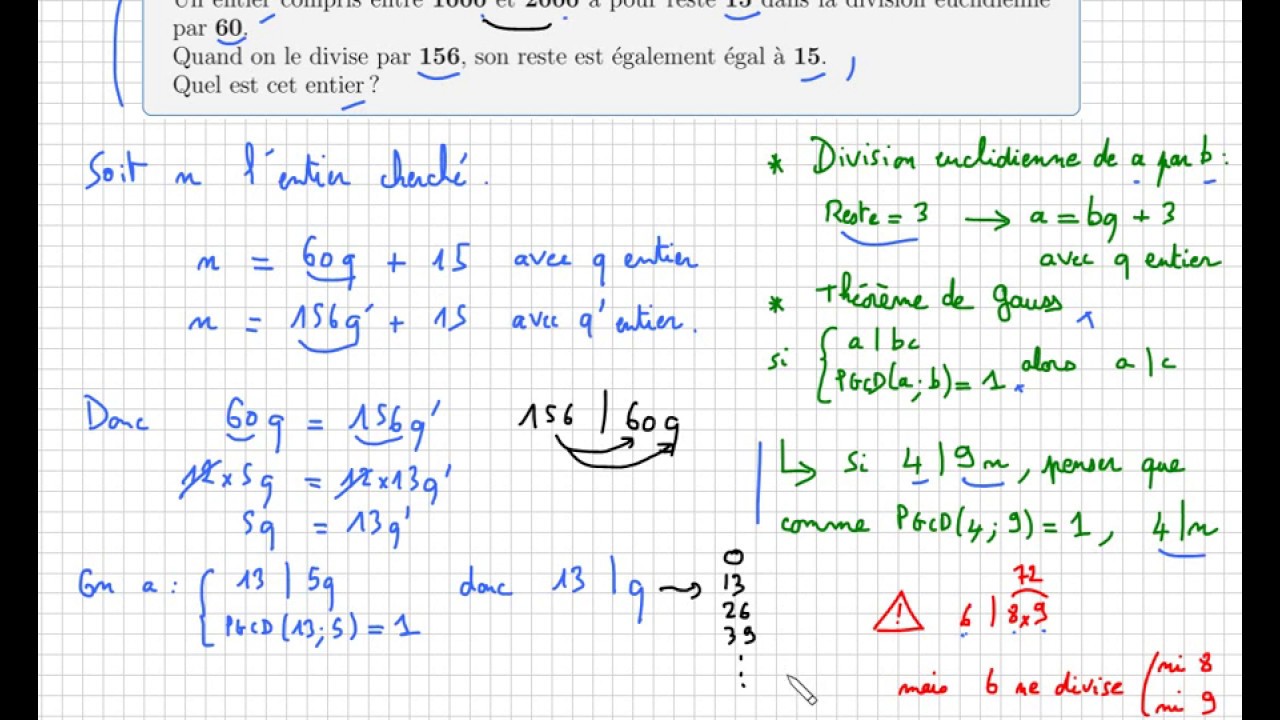 Un entier compris entre 1000 et 2000 a pour reste 15 dans la division euclidienne
par 60.
Quand on le divise par 156, son reste est également égal à 15.
Quel est cet entier ?
Soit n l'entier cherché.
n = 60q + 15 avec q entier
n = 156q' + 15 avec q' entier.
Donc 60q = 156q'
12×5q = 12×13q'
5q = 13q'
On a : { 13 | 5q
PGCD(13;5) = 1
donc 13 | q →
0
13
26
39
⋮
156 | 60q
* Division euclidienne de a par b :
Reste = 3 → a = bq + 3
avec q entier
* Théorème de Gauss
si { a | bc
PGCD(a;b) = 1 alors a | c
↳ Si 4 | 9n, penser que
comme PGCD(4;9) = 1, 4 | n
72
⚠ 6 | 8×9
mais 6 ne divise ( ni 8
ni 9